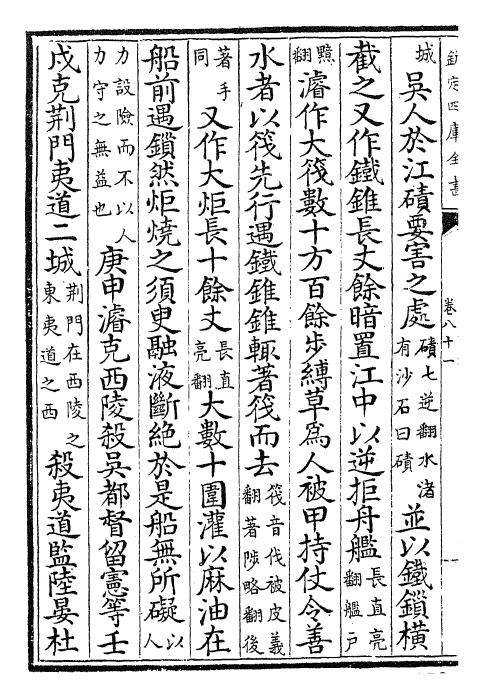 欽定四庫全書 卷八十一
城吳人於江磧要害之處磧七逆翻水渚有沙石曰磧並以鐵鎖橫
截之又作鐵錐長丈餘暗置江中以逆拒舟艦長直亮翻艦户
黯翻濬作大筏數十方百餘步縛草為人被甲持仗令善
水者以筏先行遇鐵錐錐輒著筏而去筏音伐被皮義翻著陟略翻後
著手同又作大炬長十餘丈長直亮翻大數十圍灌以麻油在
船前遇鎖然炬燒之須臾融液斷絶於是船無所礙以人
力設險而不以人力守之無益也庚申濬克西陵殺吳都督留憲等壬
戍克荆門夷道二城荆門在西陵之東夷道之西殺夷道監陸晏杜